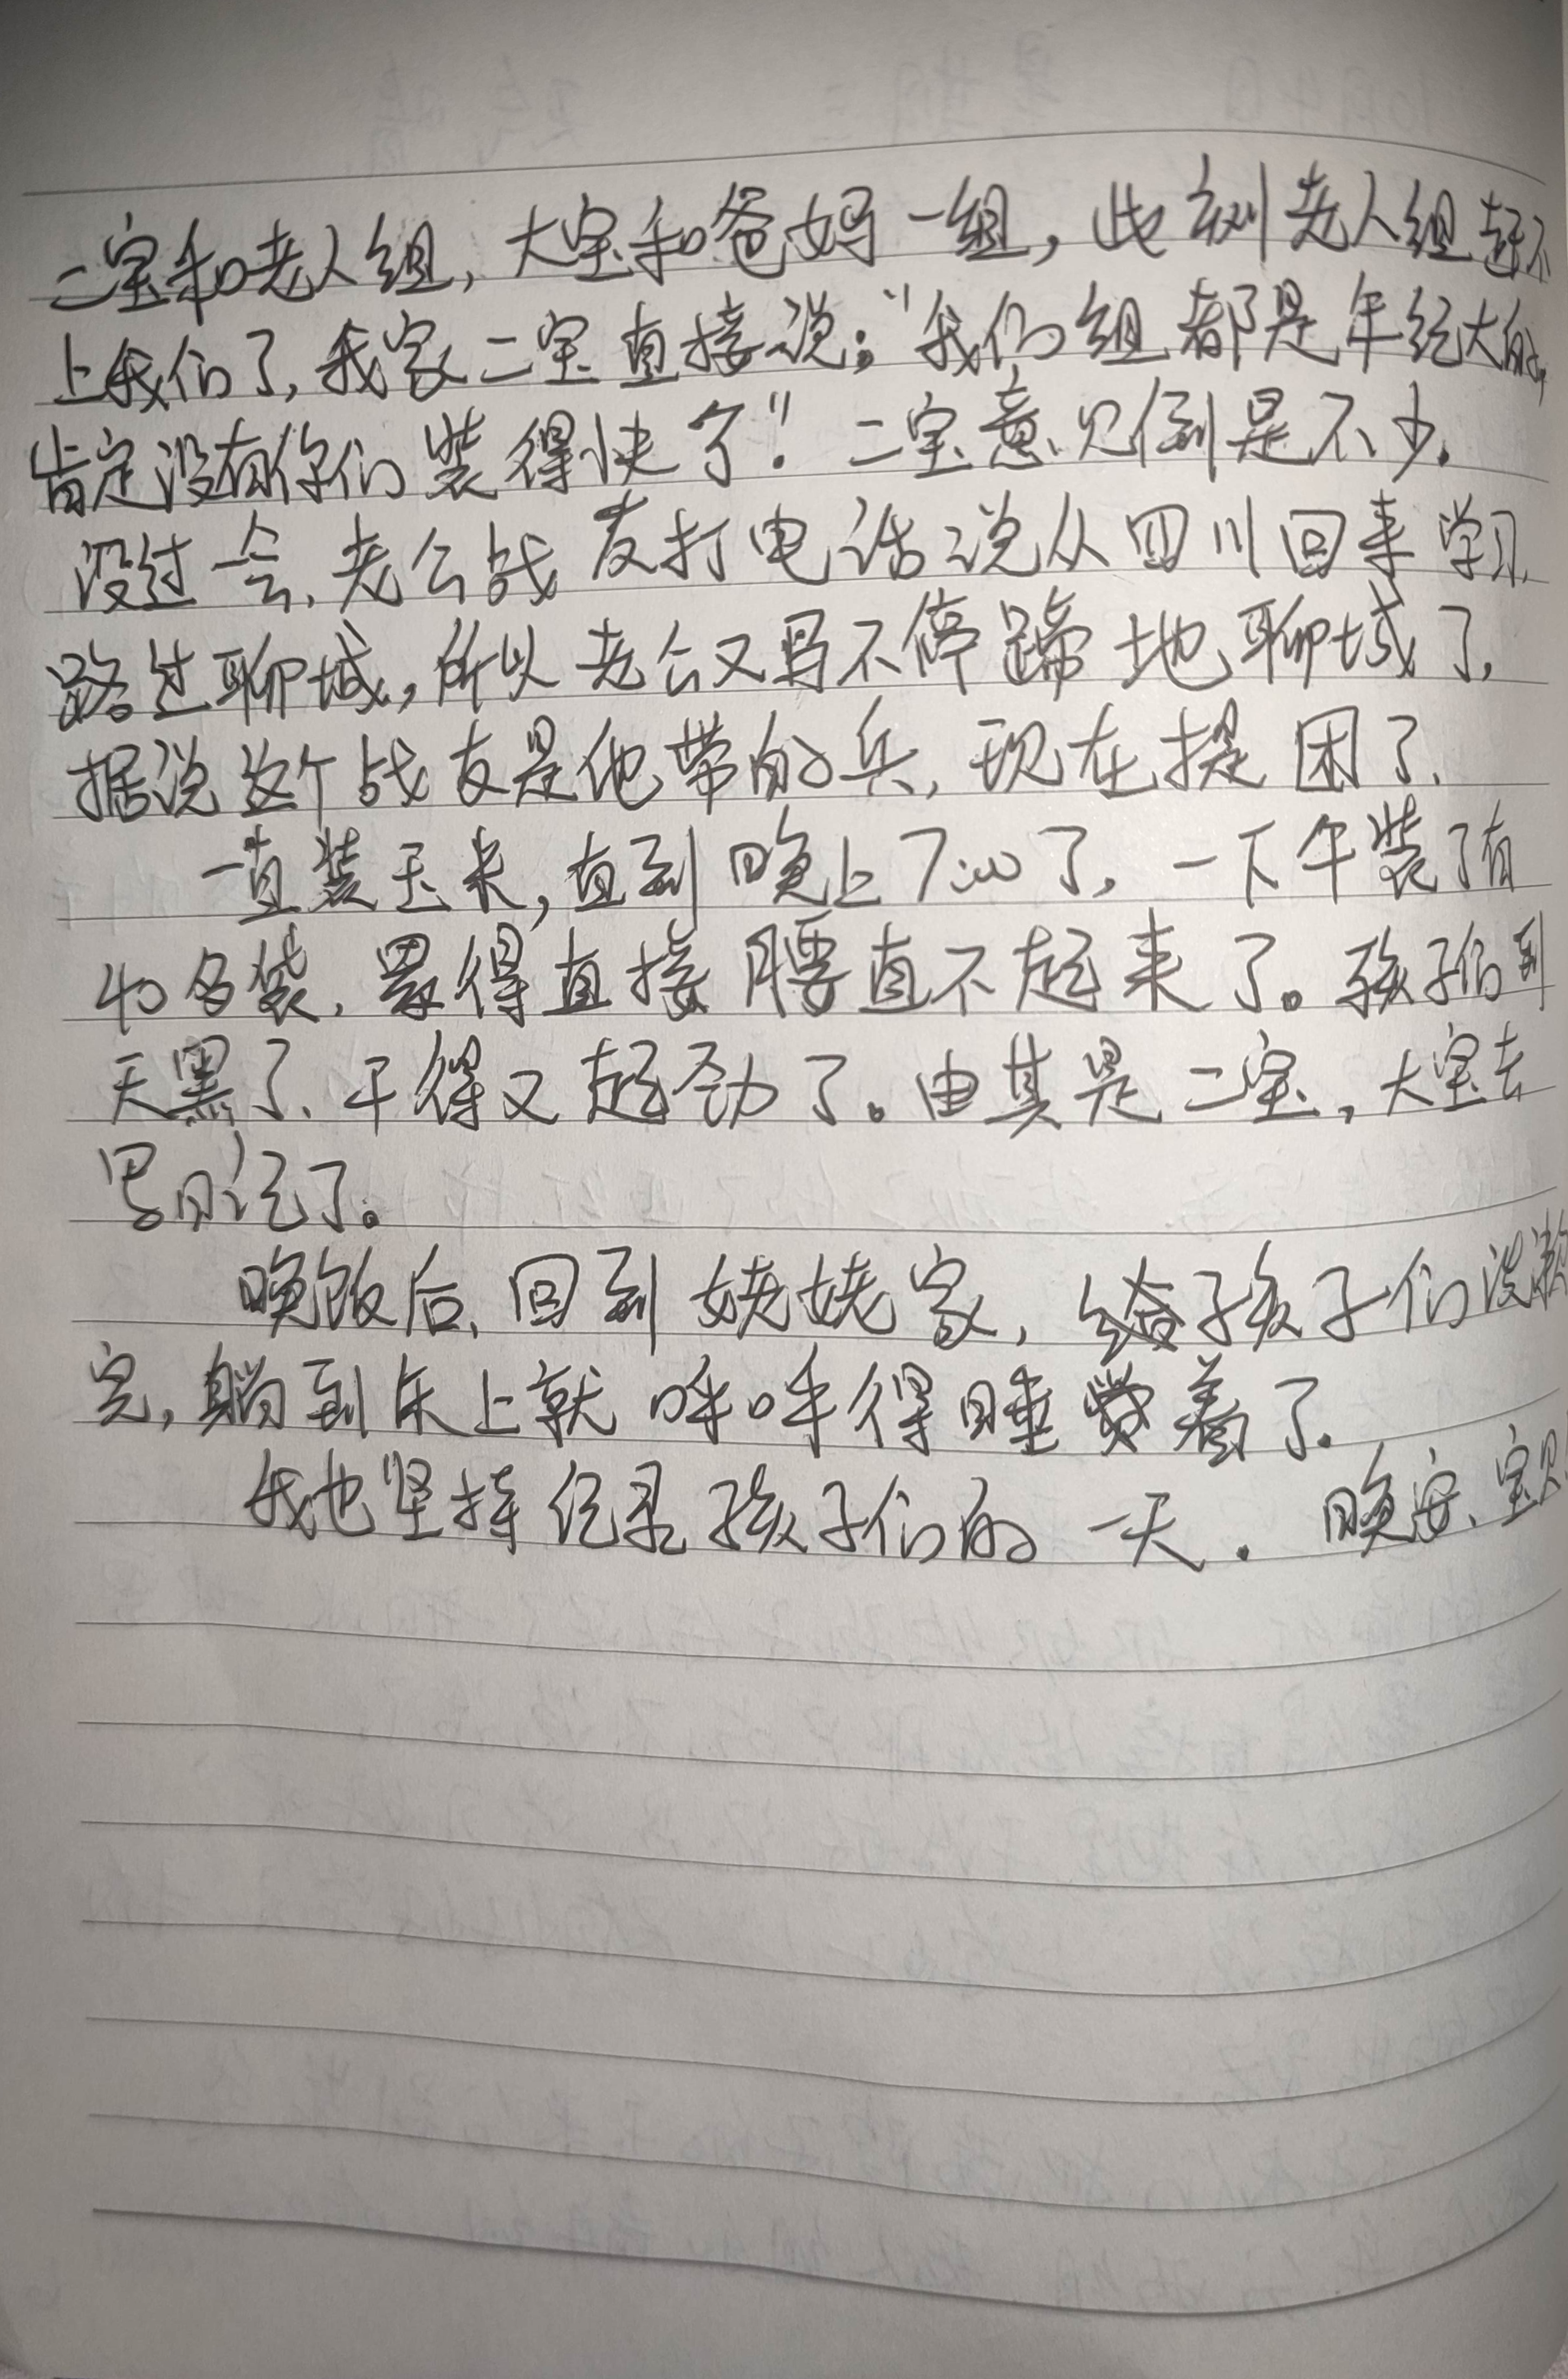 二宝和老人组,大宝和爸妈一组,此刻老人组赶不
上我们了,我家二宝直接说:“我们组都是年纪大的,
肯定没有你们装得快了!”二宝意见倒是不少.
没过一会.老公战友打电话说从四川回来学习.
路过聊城,所以老公又马不停蹄地聊城了,
据说这个战友是他带的兵,现在提困了.
一直装玉米,直到晚上7:00了,一下午装了有
40多袋.累得直接腰直不起来了。孩子们到
天黑了.干得又起劲了。由其是二宝,大宝去
写日记了。
晚饭后.回到姥姥家,给孩子们洗漱
完,躺到床上就呼呼得睡着了.
我也坚持记录孩子们的一天.晚安.宝贝